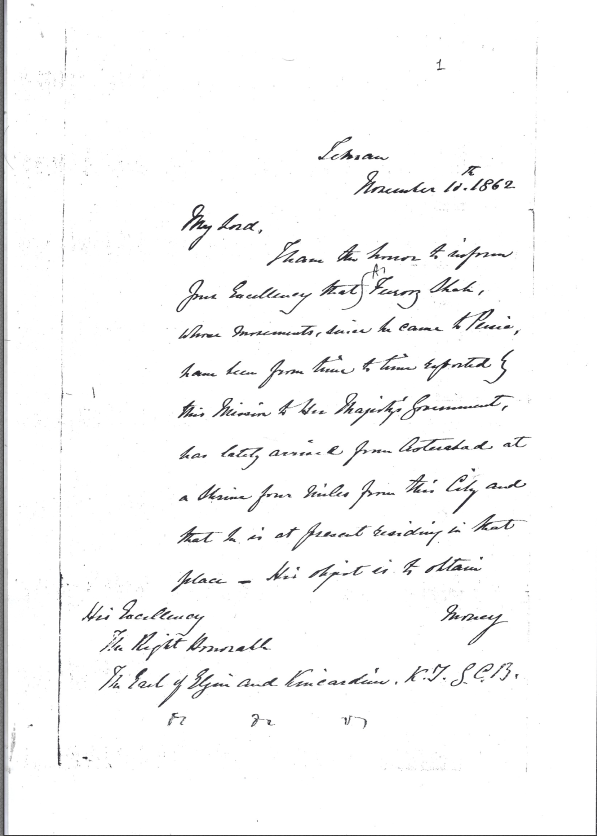 1
Tehran
November 10th. 1862
My Lord,
I have the honor to inform
Your Excellency that Feroz Shah,
whose movements, since he came to Persia,
have been from time to time reported by
this Mission to Her Majesty's Government,
has lately arrived from Asterabad at
a Shrine four miles from this City and
that he is at present residing in that
place – His object is to obtain
money
His Excellency
The Right Honorable
The Earl of Elgin and Kincardine. K.T. G.C.B.
&c &c &c